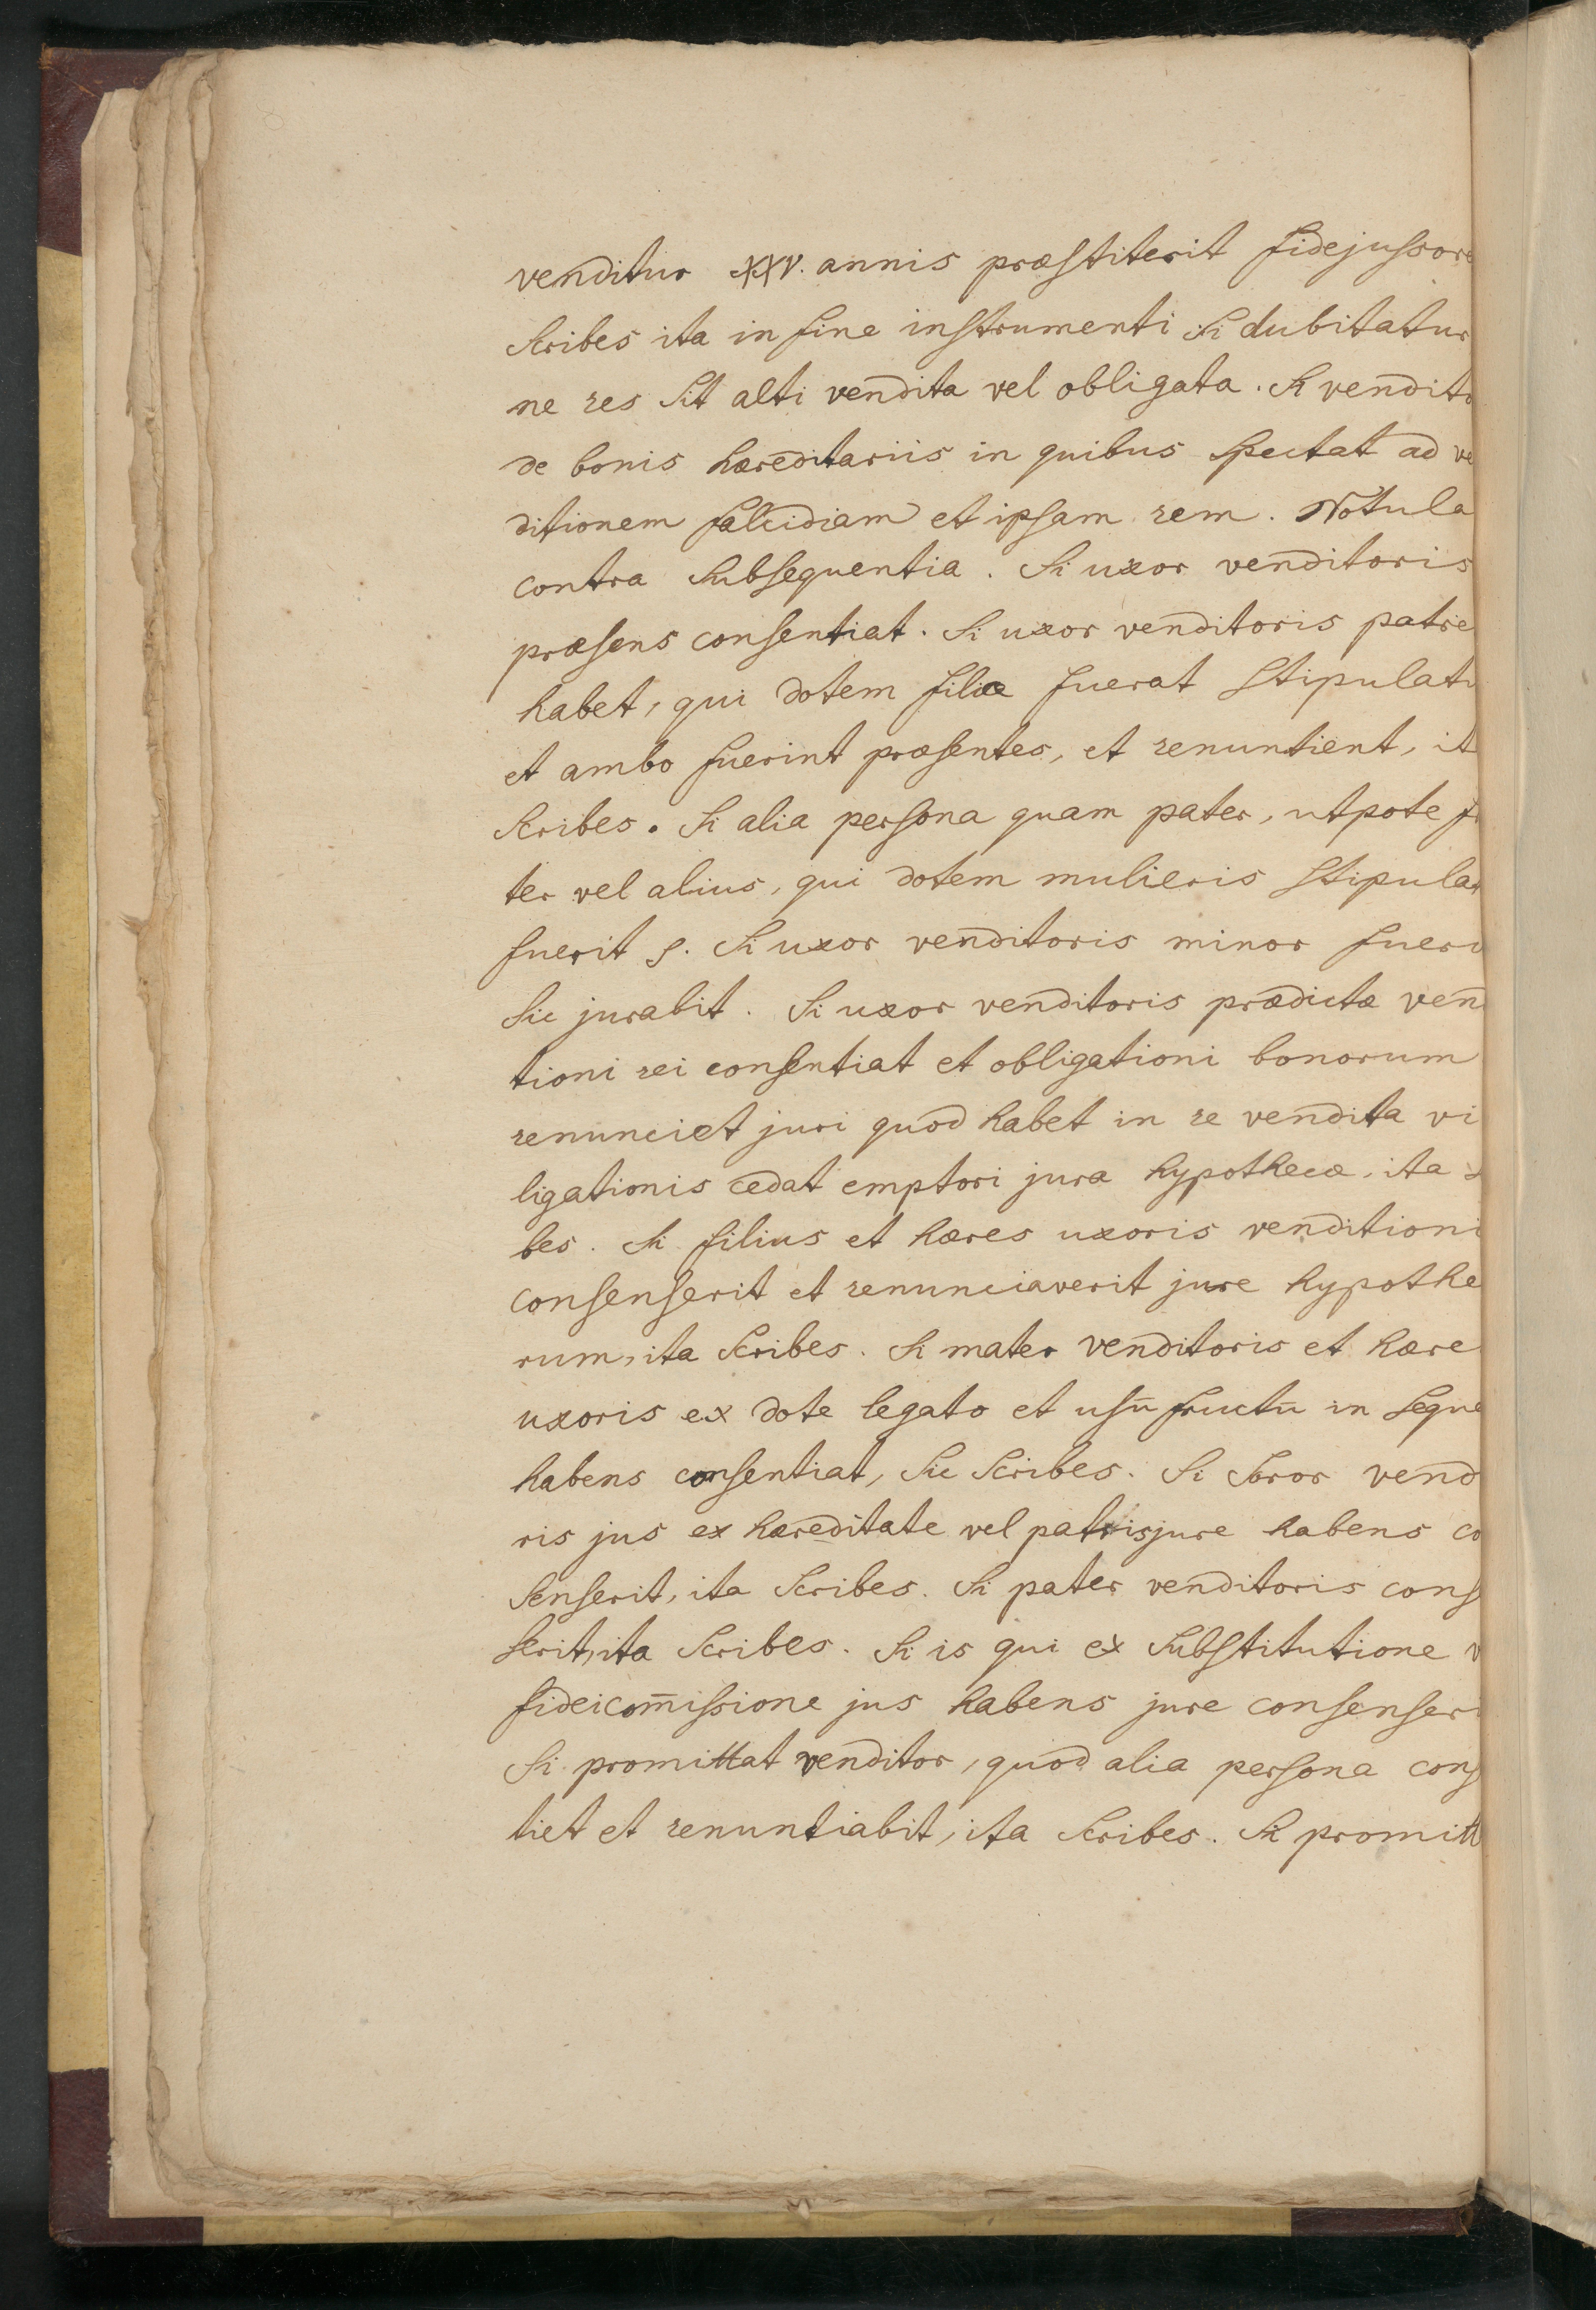 venditur XXV. annis præstiterit fidejussore
scribes ita in fine instrumenti si dubitatur
ne res sit alti vendita vel obligata. Si vendito
de bonis hæreditariis in quibus spectat ad ve
ditionem falcidiam et ipsam rem. Notula
contra subsequentia. Si uxor venditoris
præsens consentiat. Si uxor venditoris patre
habet, qui dotem filiæ fuerat stipulatu
et ambo fuerint præsentes, et renuntient, it
scribes. Si alia persona quam pater, utpote f
ter vel alius, qui dotem mulieris stipulat
fuerit s. Si uxor venditoris minor fueri
sic jurabit. Si uxor venditoris prædictæ vend
tioni rei consentiat et obligationi bonorum
renunciet juri quod habet in re vendita vi
ligationis cedat emptori jura hypothecæ, ita s
bes. Si filius et hæres uxoris venditioni
consenserit et renunciaverit jure hypothe
rum, ita scribes. Si mater venditoris et hære
uxoris ex dote legato et usū fructū in seque
habens consentiat, sic scribes. Si soror vend
ris jus ex hæreditate vel patris jure habens co
senserit, ita scribes. Si pater venditoris cons
serit, ita scribes. Si is qui ex substitutione v
fideicom̄issione jus habens jure consenseri
Si promittat venditor, quod alia persona cons
tiet et renuntiabit, ita scribes. Si promitt